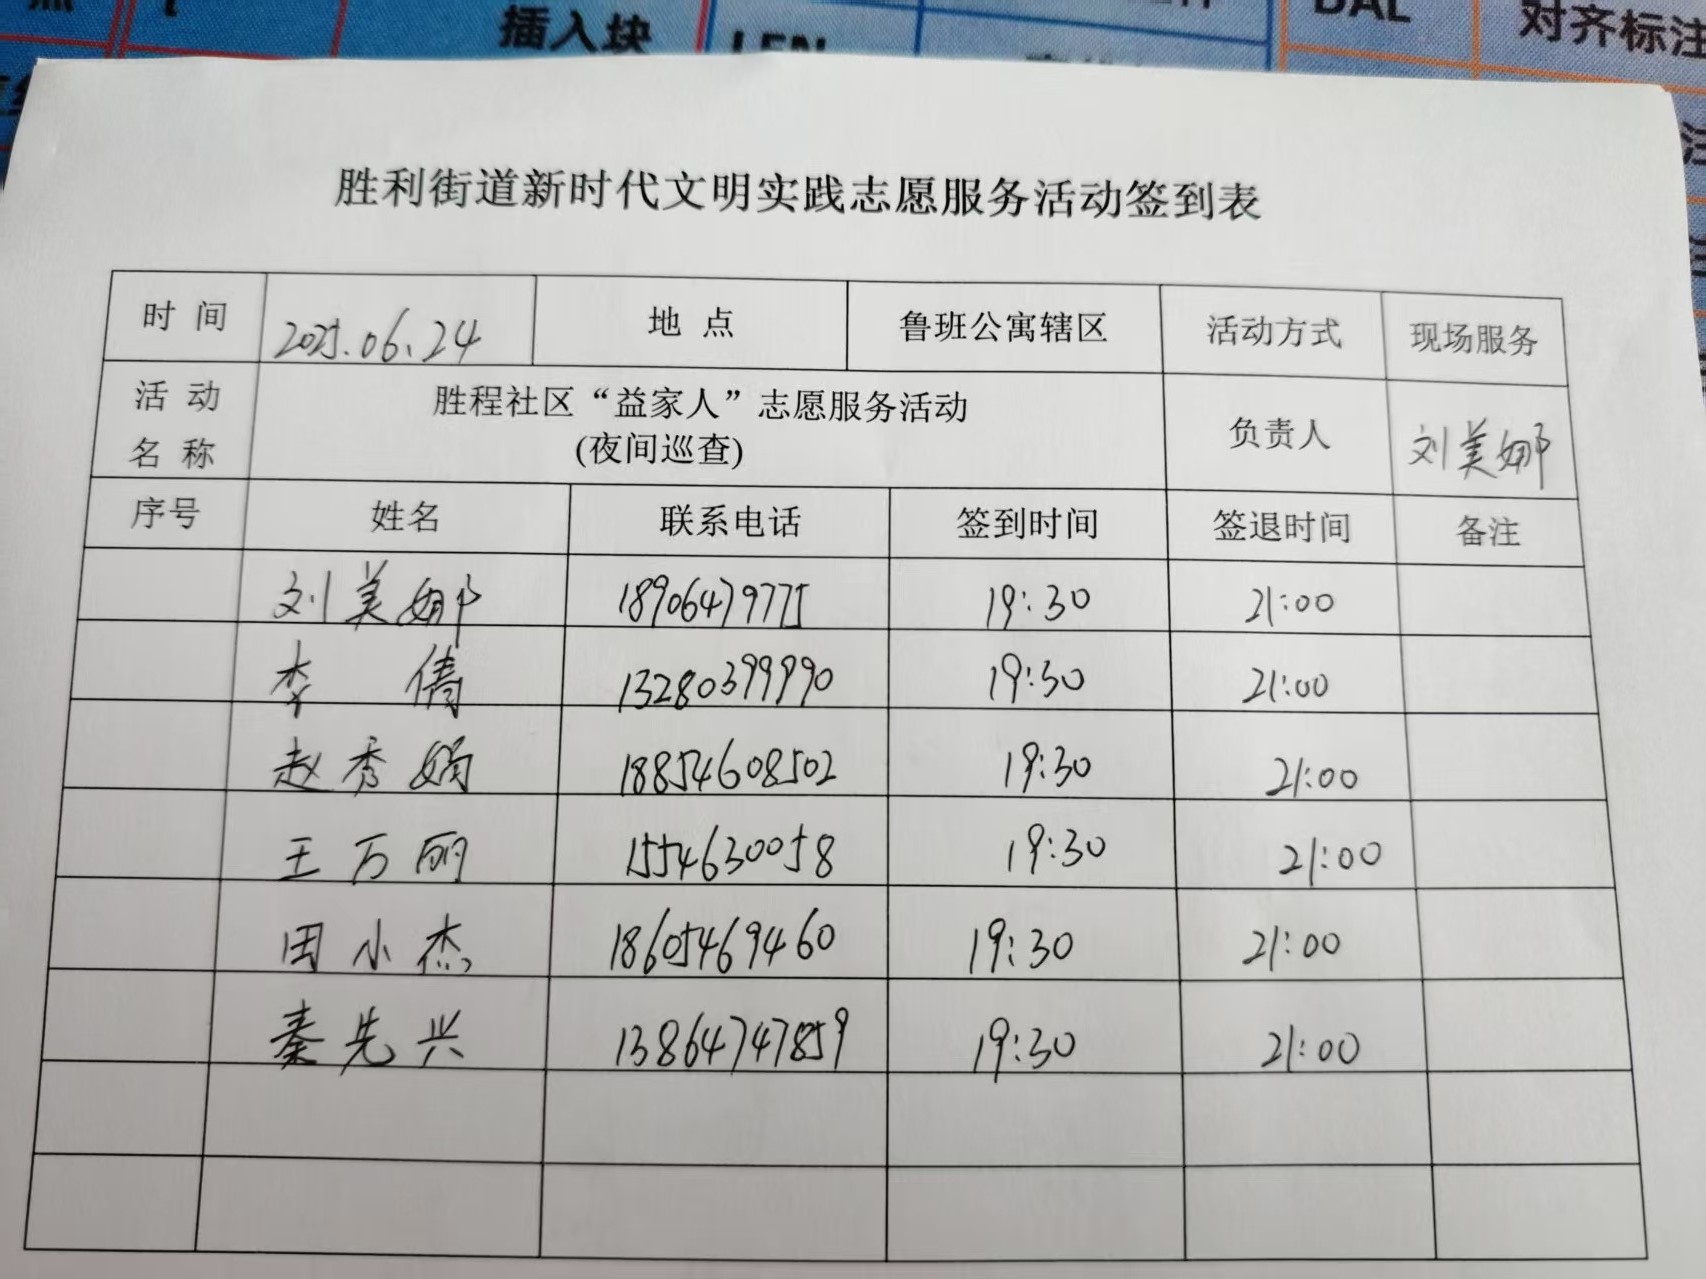 插入块
LEN
DAL
对齐标注
胜利街道新时代文明实践志愿服务活动签到表
时间 2025.06.24 地点 鲁班公寓辖区 活动方式 现场服务
活动名称 胜程社区“益家人”志愿服务活动
(夜间巡查) 负责人 刘美娜
序号 姓名 联系电话 签到时间 签退时间 备注
刘美娜 18906479775 19:30 21:00
李倩 13280399990 19:30 21:00
赵秀娟 18854608502 19:30 21:00
王万丽 15546300058 19:30 21:00
田小杰 18605469460 19:30 21:00
秦先兴 13864747859 19:30 21:00